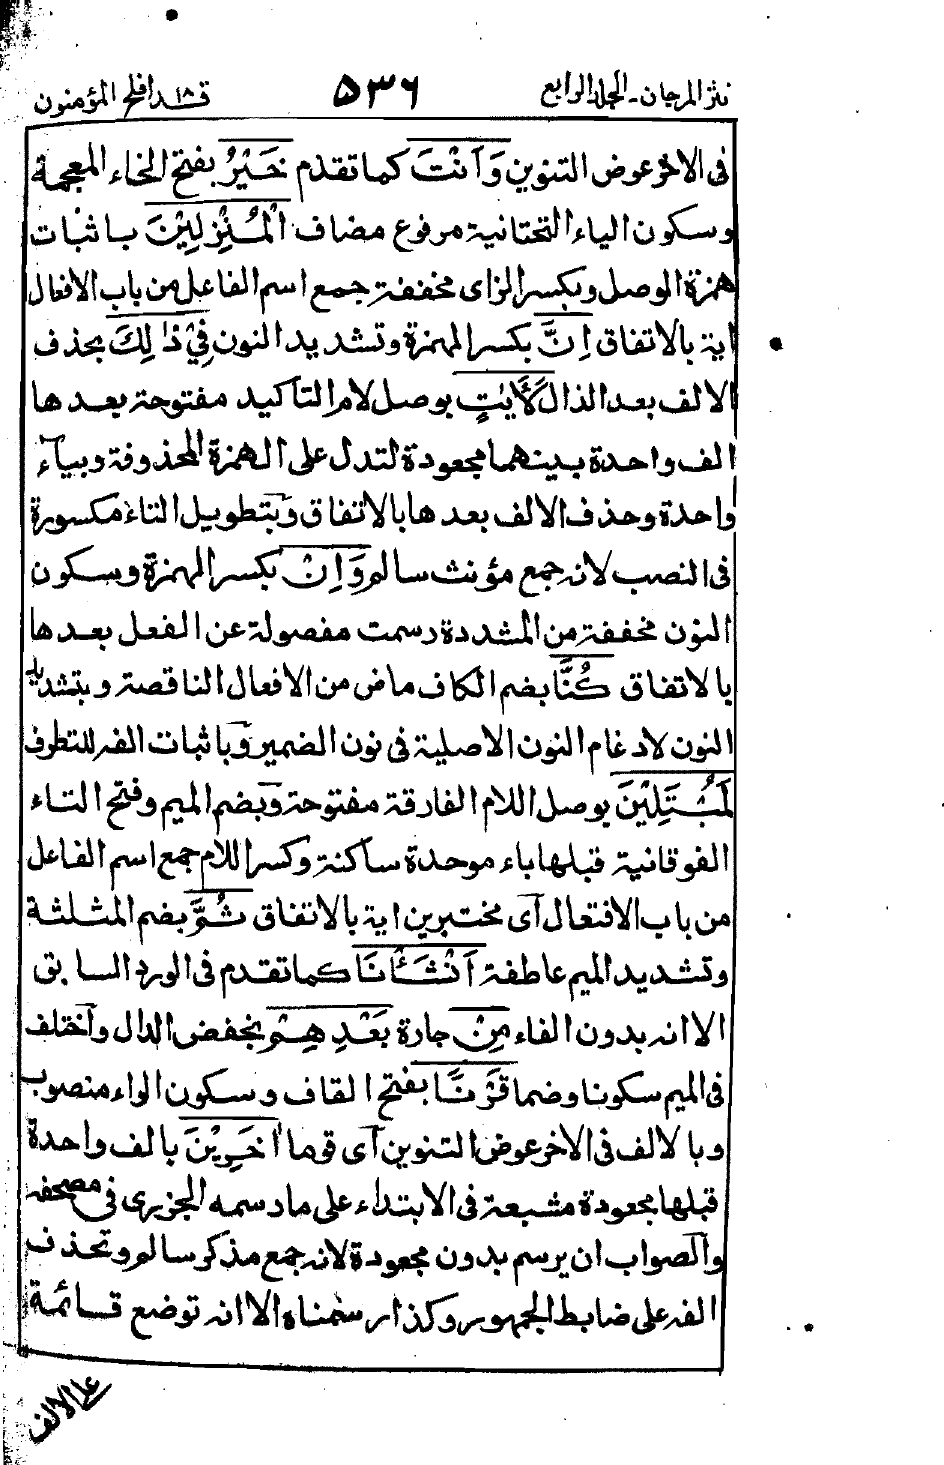 نثر المرجان - الجلد الرابع ۵۳۶ قد افلح ۱۸ المؤمنون
فى الاخر عوض التنوين وَاَنْتَ كما تقدم خَيْرُ بفتح الخاء المعجمة
وسكون الياء التحتانية مرفوع مضاف الْمُنْزِلِيْنَ باثبات
همزة الوصل وبكسر الزاى مخففة جمع اسم الفاعل من باب الافعال
اية بالاتفاق اِنَّ بكسر الهمزة وتشديد النون فِيْ ذٰلِكَ بحذف
الالف بعد الذال لَاٰيٰتٍ بوصل لام التأكيد مفتوحة بعدها
الف واحدة بينهما مجعودة لتدل على الهمزة المحذوفة وبياء
واحدة وحذف الالف بعدها بالاتفاق وبتطويل التاء مكسورة
فى النصب لانه جمع مؤنث سالم وَاِنْ بكسر الهمزة وسكون
النون مخففة من المشددة رسمت مفصولة عن الفعل بعدها
بالاتفاق كُنَّا بضم الكاف ماض من الافعال الناقصة وبتشديد
النون لادغام النون الاصلية فى نون الضمير وباثبات الفه للتطرف
لَمُبْتَلِيْنَ بوصل اللام الفارقة مفتوحة وبضم الميم وفتح التاء
الفوقانية قبلها باء موحدة ساكنة وكسر اللام جمع اسم الفاعل
من باب الافتعال آى مختبرين اية بالاتفاق ثُمَّ بضم المثلثة
وتشديد الميم عاطفة اَنْشَأْنَا كما تقدم فى الورد السابق
الا انه بدون الفاء مِنْ جارة بَعْدِهِمْ بخفض الدال واختلف
فى الميم سكونا وضما قَرْنًا بفتح القاف وسكون الراء منصوب
وبالالف فى الاخر عوض التنوين آى قوما اٰخَرِيْنَ بالف واحدة
قبلها مجعودة مشبعة فى الابتداء على ما رسمه الجزرى فى مصحفه
والصواب ان يرسم بدون مجعودة لانه جمع مذكر سالم وتحذف
الفه على ضابط الجمهور وكذا رسمناه الا انه توضع قائمة
على الالف